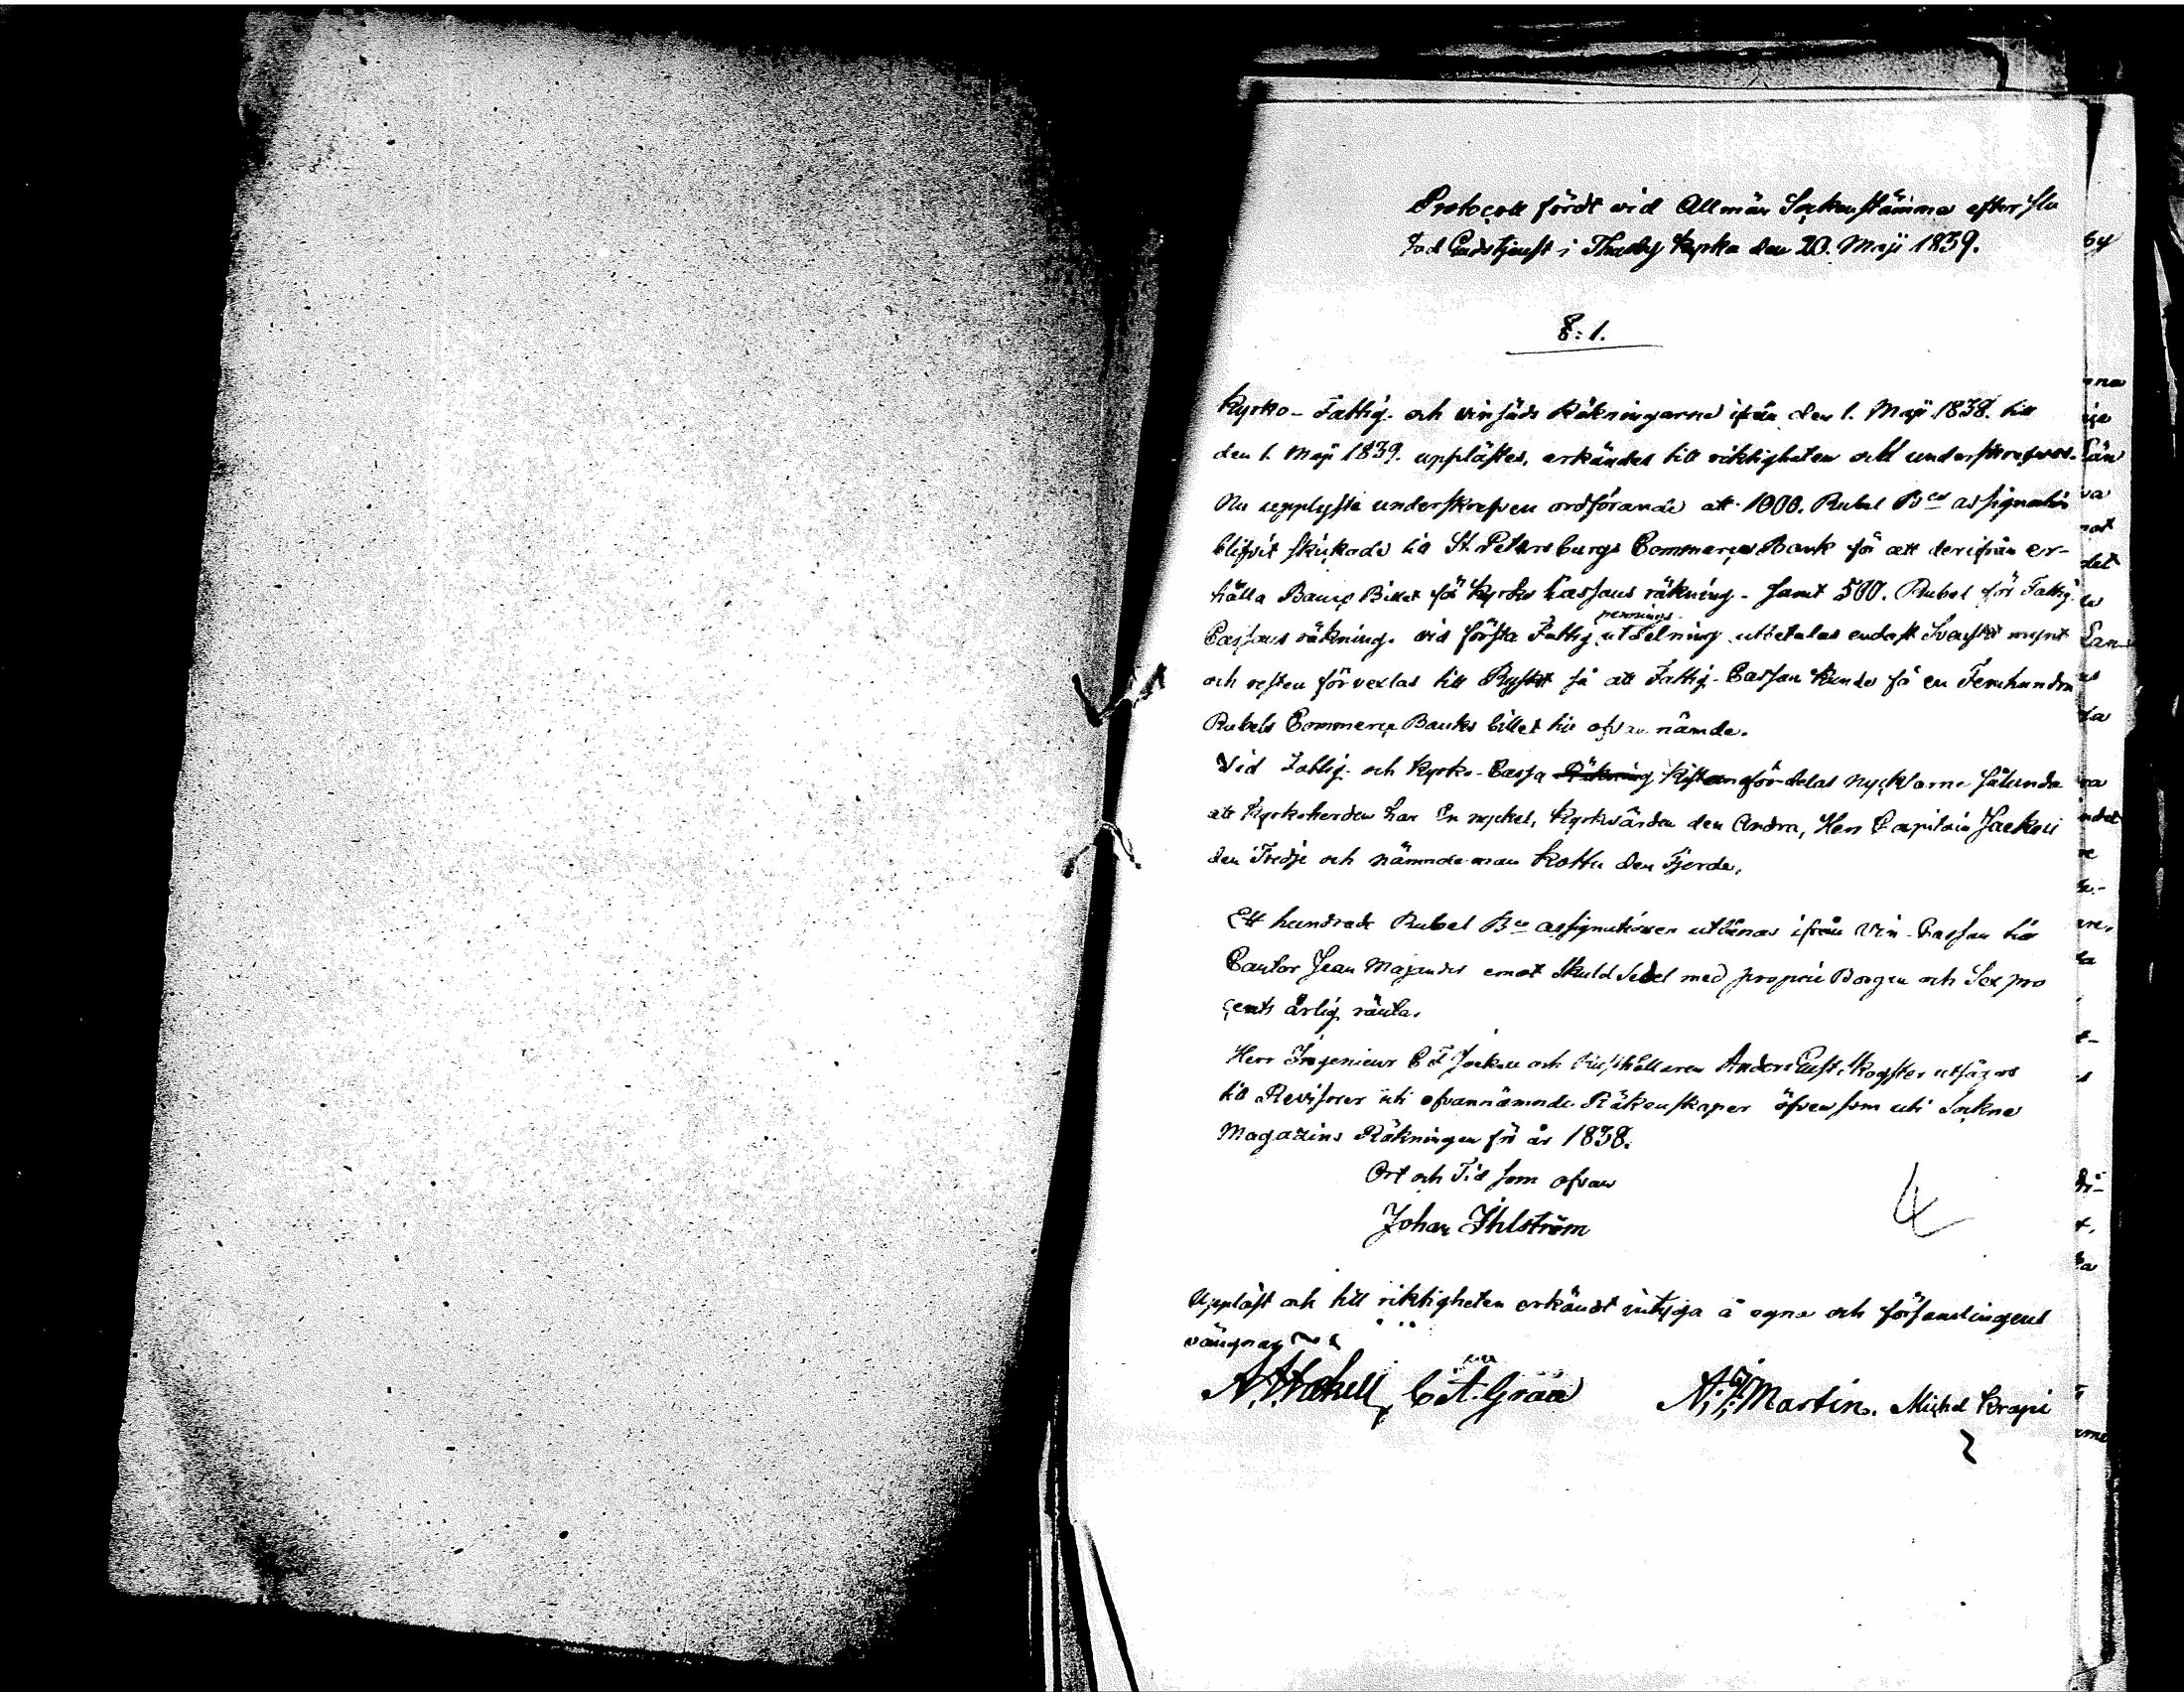 Protocoll fördt vid Allmän Sockenstämma efter slu
tad Gudstjenst i Thusby Kyrka den 20. Maji 1839.
§: 1.
Kyrko- Fattig- och vinsäds Räkningarne ifrån den 1. Maji 1838. till
den 1. Maji 1839. upplästes, erkändes till riktigheten och underskrefvos.
Nu upplyste underskrefven ordförande att 1000. Rubel Bco assignation
blifvit skickade till St. Petersburgs Commerce Bank för att derifrån er-
hålla Banco Billet för Kyrko Cassans räkning - samt 500. Rubel för Fattig
Cassans räkning. vid första Fattig pennings utdelning utbetalas endast Svenskt mynt
och resten förvexlas till Ryskt så att Fattig-Cassan kunde få en Femhundra
Rubels Commerce Banks billet lik ofvannämde.
Vid Fattig- och Kyrko-Cassa Räkning Kistan fördelas nycklarne sålunda
att Kyrkoherden har En nyckel, Kyrkvärden den Andra, Herr Capitain Jackell
den Tredje och nämndeman Kottu den Fjerde.
Ett hundrade Rubel Bco assignationer utlånas ifrån Vin-Cassan till
Cantor Jean Majander emot Skuldsedel med proprie Borgen och Sex pro
cents årlig ränta.
Herr Ingenieur C F Jackell och Rusthållaren Anders Gust. Skogster utsågos
till Revisorer uti ofvannämnde Räkenskaper äfvensom uti Sockne
Magazins Räkningen för år 1838.
Ort och Tid som ofvan
Johan Ihlström
Uppläst och till riktigheten erkändt intyga å egne och församlingens
vägnar
C A. Gråå A. G. Martin. Michel Krapi